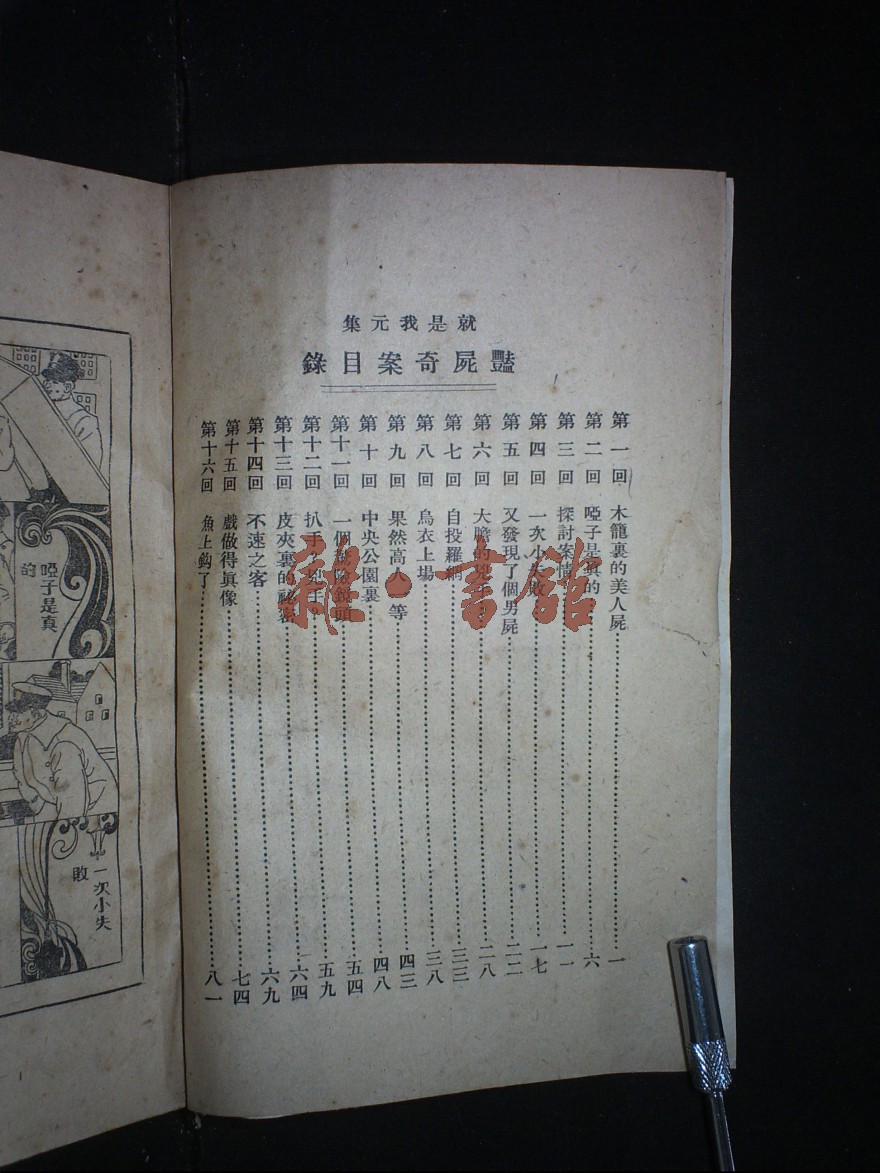 就是我元集
豔屍奇案目錄
第一回 木籠裏的美人屍 一
第二回 啞子是眞的 六
第三回 探討案情 一一
第四回 一次小失敗 一七
第五回 又發現了個男屍 二二
第六回 大膽的兇手 二八
第七回 自投羅網 三三
第八回 烏衣上場 三八
第九回 果然高人一等 四三
第十回 中央公園裏 四八
第十一回 一個驚險鏡頭 五四
第十二回 扒手?兇手? 五九
第十三回 皮夾裏的祕密 六四
第十四回 不速之客 六九
第十五回 戲做得眞像 七四
第十六回 魚上鈎了 八一
啞子是真的
一次小失敗
雜·書館